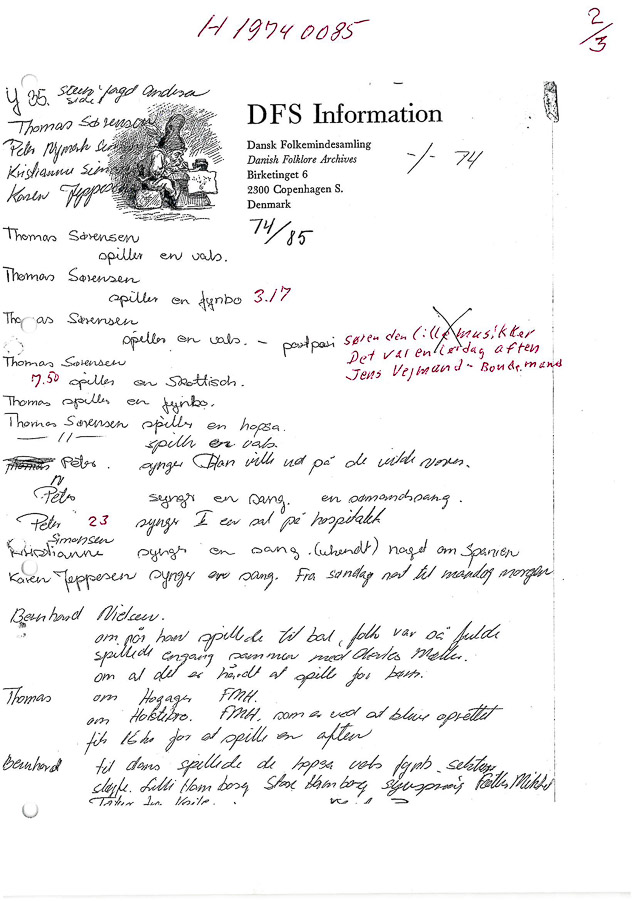 H 1974 0085
2/3
y 35. Steen Jagd Andersen
side 1
Thomas Sørensen
Peter Nymark
Kristianne
Karen Jeppesen
DFS Information
Dansk Folkemindesamling
Danish Folklore Archives
Birketinget 6
2300 Copenhagen S.
Denmark
-/- 74
74/85
Thomas Sørensen
spiller en vals.
Thomas Sørensen
spiller en fynbo 3.17
Thomas Sørensen
spiller en vals. – potpouri Søren den lille musikkar
Det var en lørdag aften
Jens Vejmand – Bondemand
Thomas Sørensen
7.50 spiller en Skottisch.
Thomas spiller en fynbo.
Thomas Sørensen spiller en hopsa.
— 11 — spiller en vals.
Thomas Peter synger Han ville ud på de vilde
N
Peter synger en sang. en sømandssang.
Peter 23 synger I en sal på hospitalet
Simonsen
Kristianne synger en sang. (ukendt) noget om Spanien
Karen Jeppesen synger en sang. Fra søndag nat til mandag morgen
Bernhard Nielsen.
om når han spillede til bal, folk var så fulde
spillede engang sammen med Møller.
om at det er hårdt at spille for børn.
Thomas om Hogager FMH.
om Holstebro. FMH. som er ved at blive oprettet
fik 16 kr for at spille en aften
Bernhard til dans spillede de hopsa vals fynb.
Lilli Hamborg Store Hamborg Mikkel